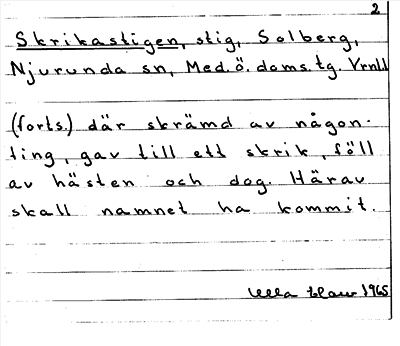 2
Skrikastigen, stig, Solberg,
Njurunda sn, Med.ö. doms.tg. Vrnld
(forts.) där skrämd av någon-
ting, gav till ett skrik, föll
av hästen och dog. Härav
skall namnet ha kommit.
Ulla 1965